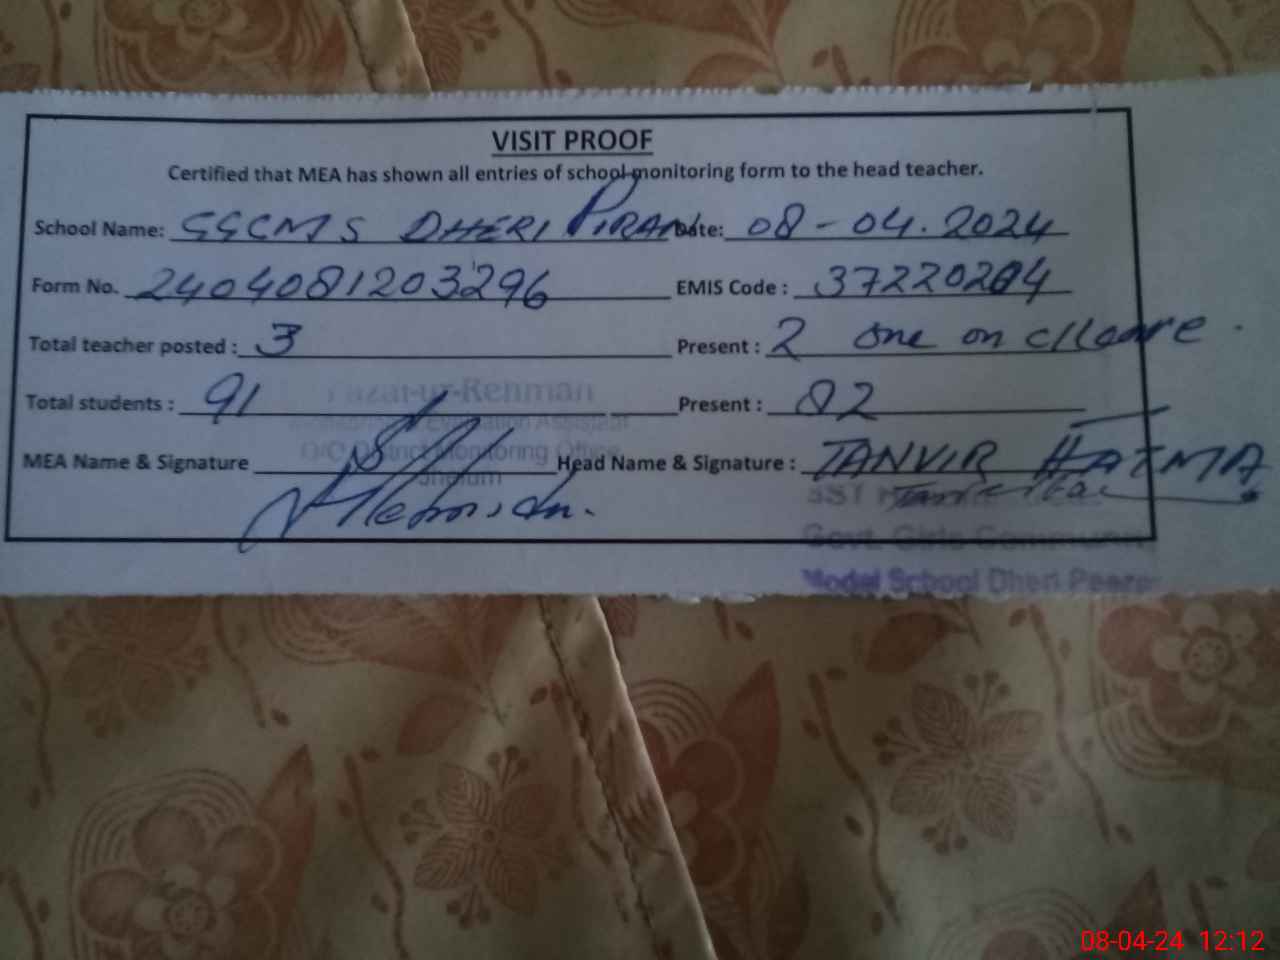 VISIT PROOF
Certified that MEA has shown all entries of school monitoring form to the head teacher.
School Name: GGCMS DHERI PIRAN Date: 08-04.2024
Form No. 2404081203296 EMIS Code : 37220204
Total teacher posted : 3 Present : 2 one on
Total students : 91 Present : 82
MEA Name & Signature Head Name & Signature : TANVIR FATMA
Fazal-ur-Rehman
Monitoring & Evaluation Assistant
O/O District Monitoring Office
Jhelum
SST
Govt. Girls Community
Model School Dheri Peeran
08-04-24 12:12